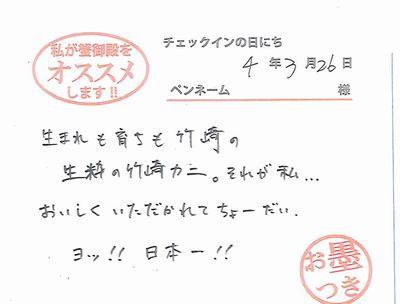 私が蟹御殿を
オススメ
します!!
チェックインの日にち
4 年 3 月 26 日
ペンネーム 様
生まれも育ちも竹崎の
生粋の竹崎カニ。それが私...
おいしくいただかれてちょーだい.
ヨッ!! 日本一!!
お墨
つき